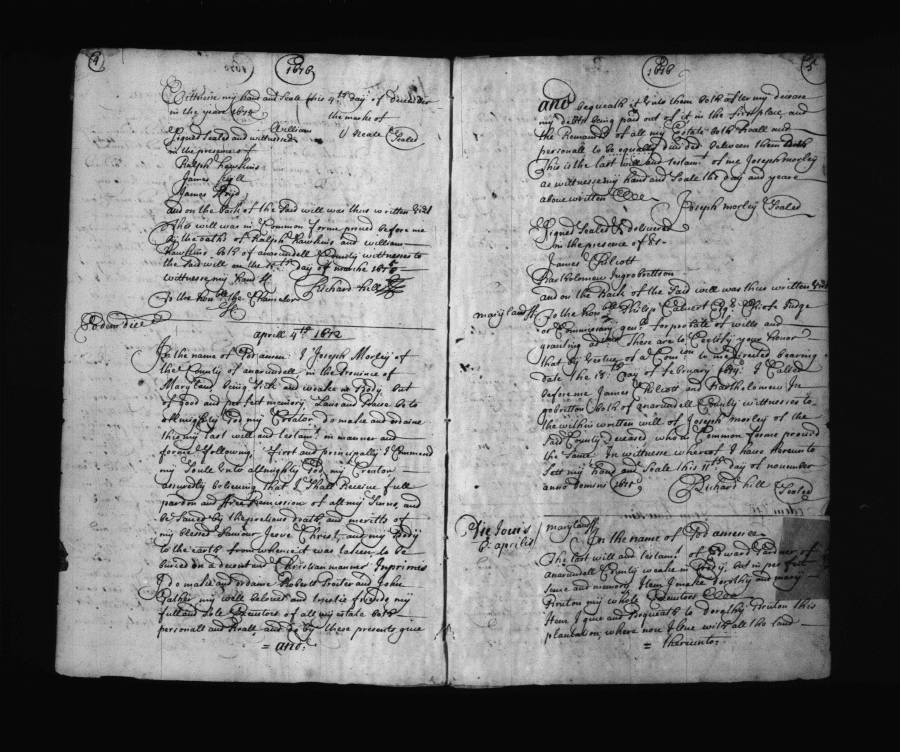 4
1676
Wittnesse my hand and Seale this 4th day of December
in the yeare 1675 the marke of
Signed Sealed and witnessed William
in the presence of U Neale Sealed
Ralph Hawkins
James
James
and on the back of the said will was thus written vizt
This will was in Common forme proved before me
by the oaths of Ralph Hawkins and william
Hawkins both of anarundell County wittnesses to
the said will on the day of marche 1675
wittnesse my hand &c
To the honble the Chancelor Richard Hill
&c
Eodem die
aprill 4th 1672
In the name of God amen I Joseph Morley of
the County of anarundell in the Province of
Maryland being sick and weake in Body but
of good and perfect memory Laud and Praise be to
allmighty God my Creator do make and ordaine
this my last will and testamt in manner and
forme following first and principally I Commend
my Soule Unto allmighty God my Creator
assuredly believing that I shall Receive full
pardon and free Remission of all my Sinns, and
be saved by the pretious death, and meritts of
my blessed Saviour Jesus Christ, and my Body
to the earth from whence it was taken, to be
buried in a decent and Christian manner Inprimis
I do make and ordaine Robert Procter and John
Gather my well beloved and trustie friends my
full and sole Executors of all my estate both
personall and Reall, and do by these presents give
= and:
1676
5
and bequeath it Unto them both after my decease
my debts being paid out of it in the first place, and
the Remainder of all my Estate both Reall and
personall to be equally divided between them both
This is the last will and testamt of me Joseph Morley
as wittnesse my hand and Seale the day and yeare
above written
Joseph Morley Sealed
Signed Sealed & delivered
in the presence of us
James Chilcott
Bartholomew Ingrobrittson
and on the back of the said will was thus written vizt
maryland ss To the Honble Philip Calvert Esqr Chiefe Judge
or Commissary genll for probate of wills and
granting These are to Certify your Honor
that by Vertue of a Comicon to me directed bearing
date the 18th day of February 1674 I Called
before me James Chilcott and Bartholomew In
gobrittson both of anarundell County wittnesses to
the within written will of Joseph Morley of the
said County deceased who in Common forme proved
the same In wittnesse whereof I have hereunto
sett my hand and Seale this 11th day of november
anno domini 1675 Richard Hill Sealed
Die Jovis maryland ss
6o aprilis In the name of God amen
The last will and testamt of Edward Gardner of
anarundell County weake in Body, but in perfect
sence and memory Item I make dorothy and mary
Bruton my whole Executors
Item I give and Bequeath to dorothy Bruton this
plantation, where now I live with all the land
= thereunto: